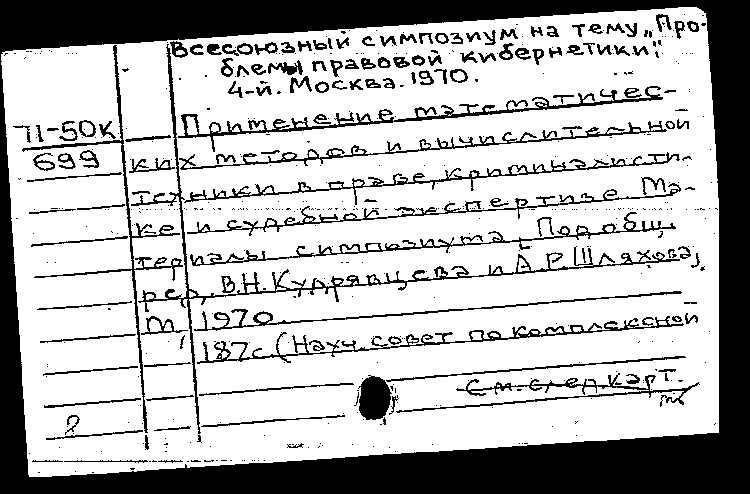 Всесоюзный симпозиум на тему „Про-
блемы правовой кибернетики".
4-й. Москва. 1970.
71-50К
699
Применение математичес-
ких методов и вычислительной
техники в праве, криминалисти-
ке и судебной экспертизе. Ма-
териалы симпозиума. Под общ.
ред. В.Н. Кудрявцева и А.Р. Шляхова,
М, 1970.
187с. (Науч. совет по комплексной
См. след. карт.